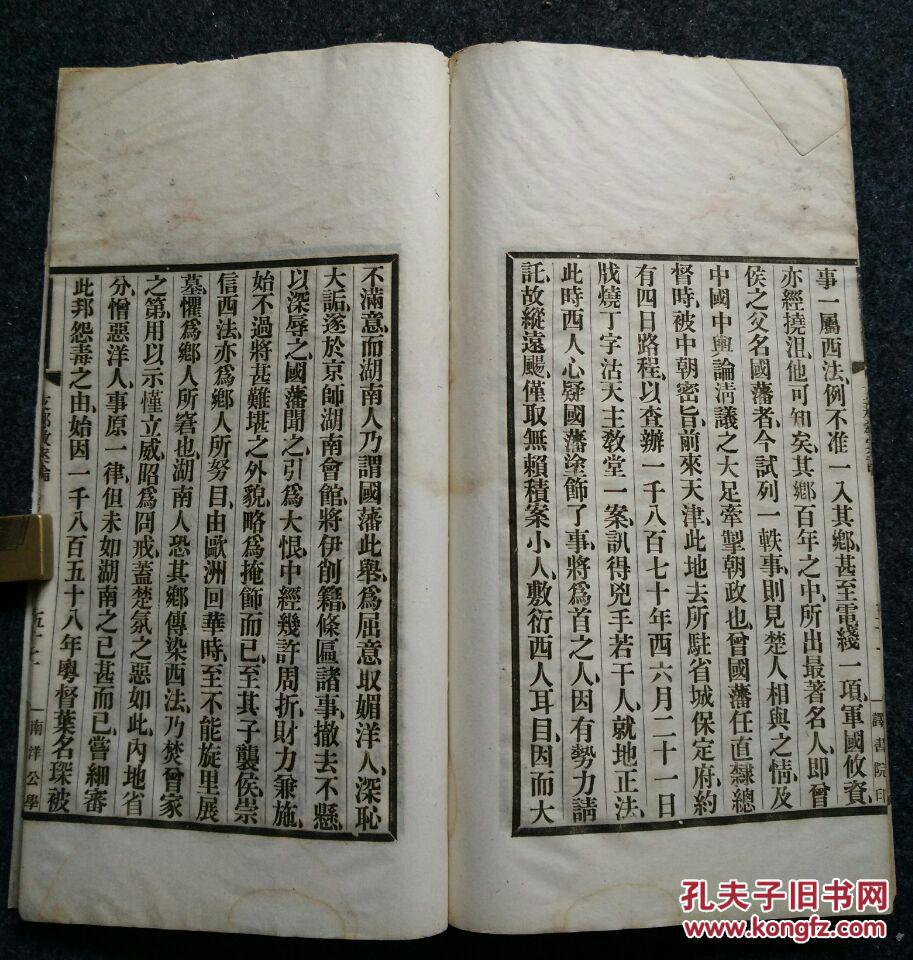 事一屬西法、例不准一入其鄉、甚至電綫一項、軍國攸資、
亦經撓沮、他可知矣、其鄉百年之中、所出最著名人、即曾
侯之父名國藩者、今試列一軼事、則見楚人相與之情、及
中國中輿論清議之大足牽掣朝政也、曾國藩任直隸總
督時、被中朝密旨、前來天津、此地去所駐省城保定府、約
有四日路程、以查辦一千八百七十年西六月二十一日
戕燒丁字沽天主教堂一案、訊得兇手若干人、就地正法、
此時西人心疑國藩塗飾了事、將為首之人、因有勢力請
託、故縱遠颺、僅取無賴積案小人、敷衍西人耳目、因而大
譯書院印
不滿意、而湖南人乃謂國藩此舉、爲屈意取媚洋人、深恥
大詬、遂於京師湖南會館、將伊創籍、條區諸事、撤去不懸、
以深辱之、國藩聞之、引爲大恨、中經幾許周折、財力兼施、
始不過將甚難堪之外貌、略爲掩飾而已、至其子襲侯、崇
信西法、亦爲鄉人所努目、由歐洲回華時、至不能旋里展
墓、懼爲鄉人所窘也、湖南人恐其鄉傳染西法、乃焚曾家
之第、用以示懂立威、昭爲冋戒、蓋楚氛之惡如此、内地省
分、憎惡洋人、事原一律、但未如湖南之已甚而已、嘗細審
此邦怨毒之由、始因一千八百五十八年粵督葉名琛被
支那教案論
南洋公學
孔夫子旧书网
www.kongfz.com